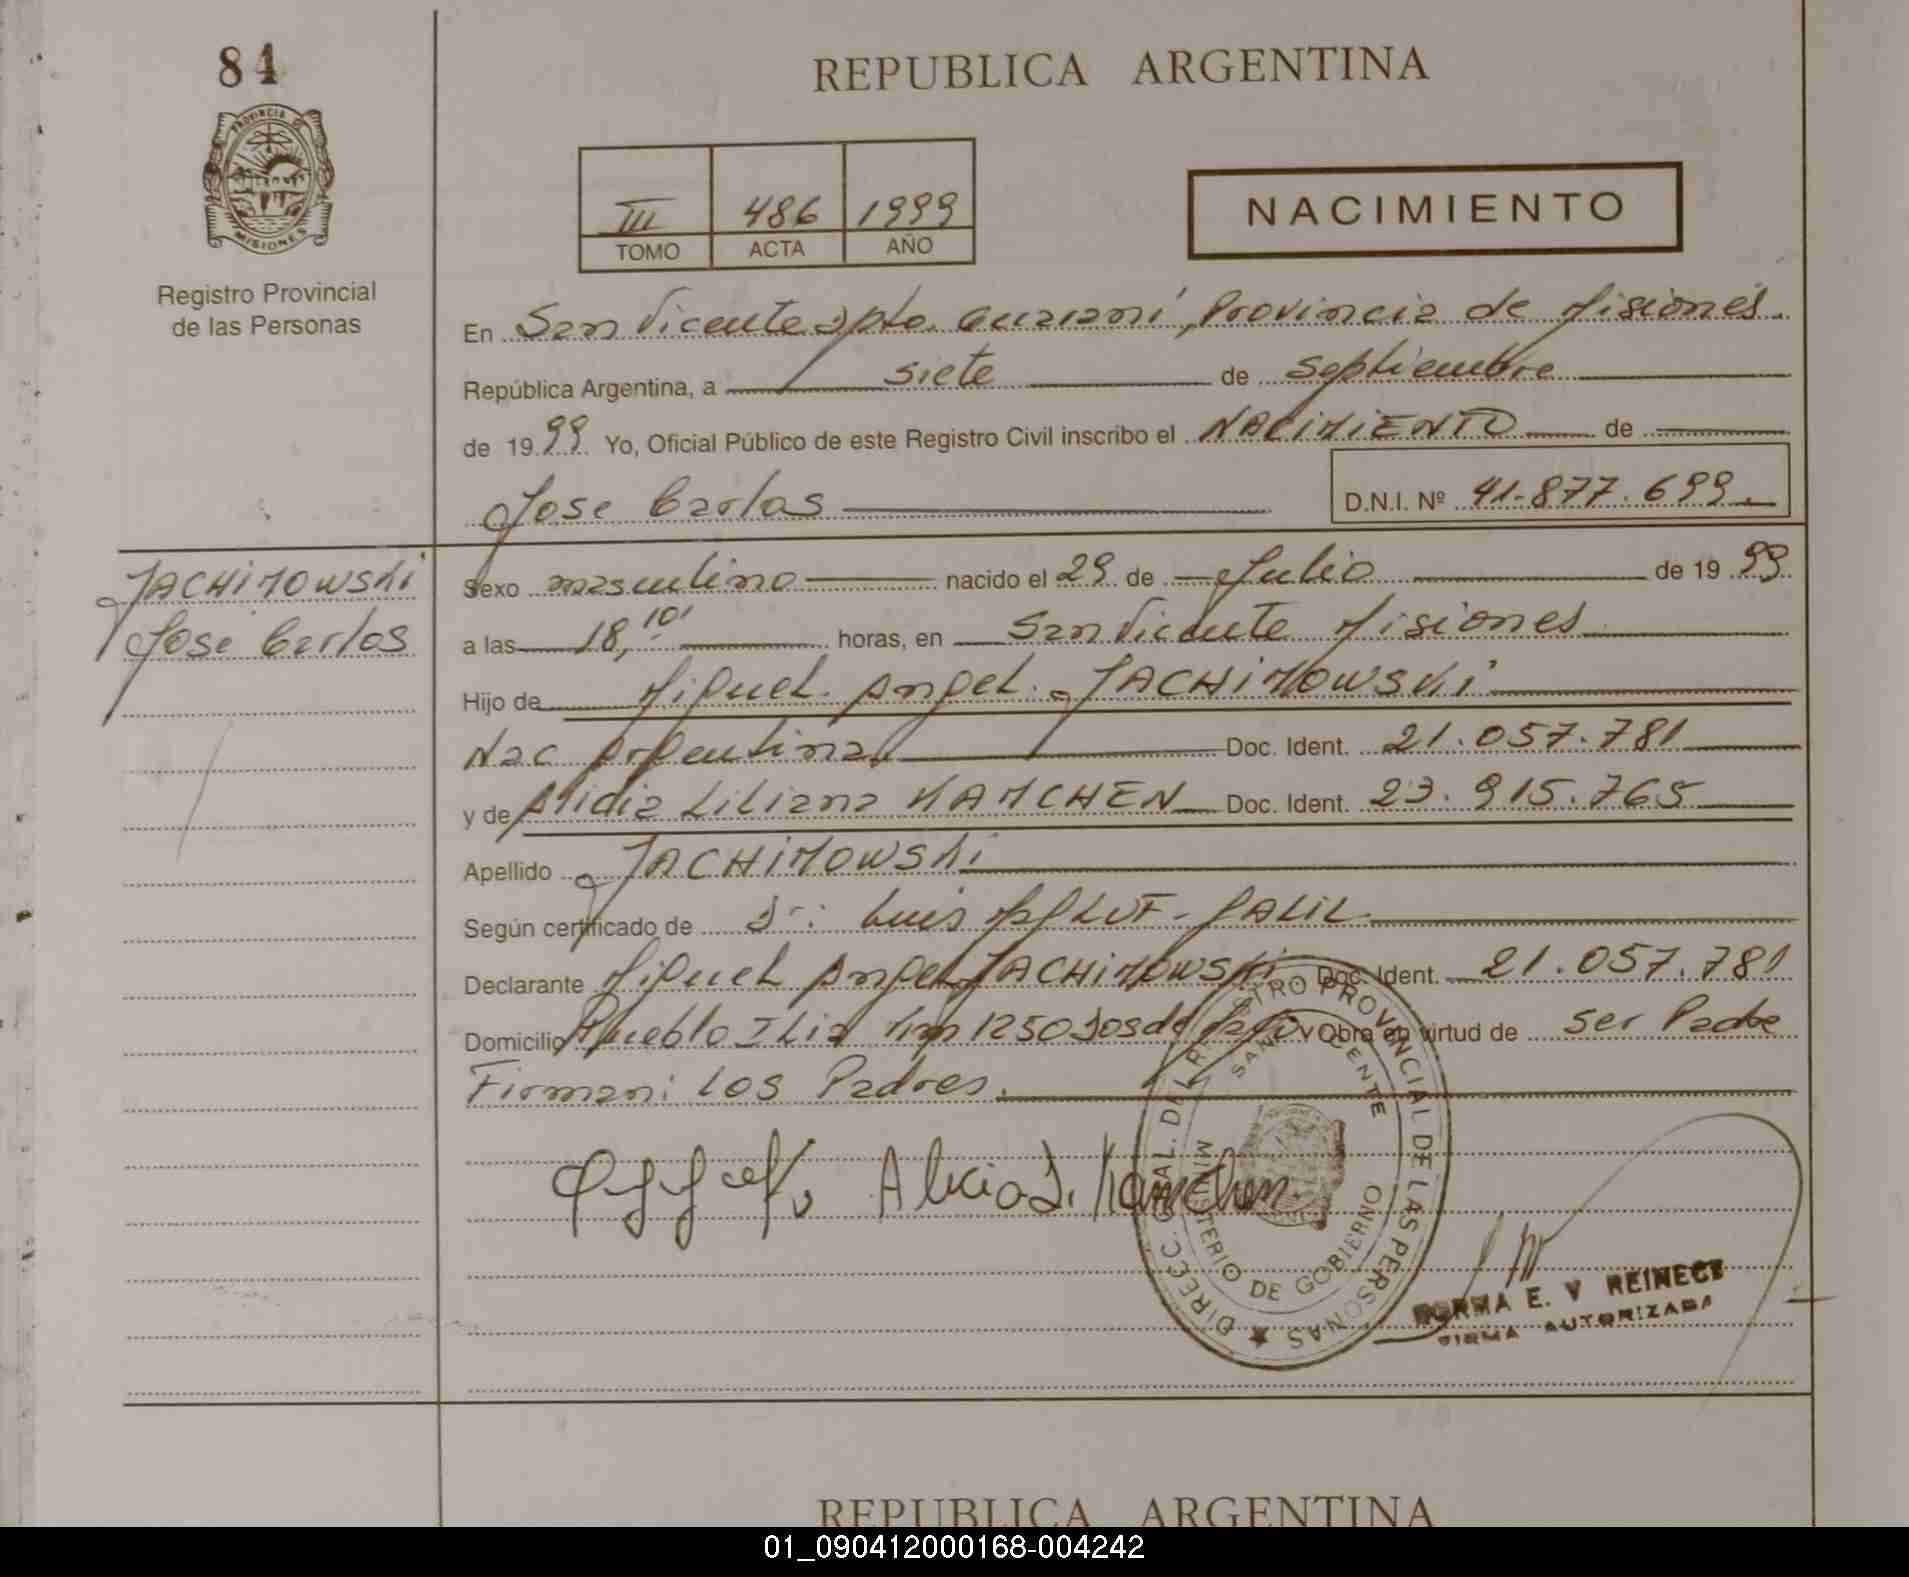 84
REPUBLICA ARGENTINA
PROVINCIA DE
MISIONES
Registro Provincial
de las Personas
III 486 1999
TOMO ACTA AÑO
NACIMIENTO
En San Vicente Dpto. Guarani, Provincia de Misiones.
República Argentina, a siete de septiembre
de 1999 Yo, Oficial Público de este Registro Civil inscribo el NACIMIENTO de
Jose Carlos D.N.I. Nº 41.877.699.
JACHIMOWSKI
Jose Carlos
Sexo masculino nacido el 29 de Julio de 1999
a las 18,10' horas, en San Vicente Misiones
Hijo de Miguel Angel JACHIMOWSKI
Nac Argentina Doc. Ident. 21.057.781
y de Alicia Liliana KAMCHEN Doc. Ident. 23.915.765
Apellido JACHIMOWSKI
Según certificado de Dr: Luis GALIL
Declarante Miguel Angel JACHIMOWSKI Doc. Ident. 21.057.781
Domicilio Pueblo Ilia Km 1250 Dos de Mayo y Obra en virtud de ser Padre
Firman: Los Padres.
Alicia L. Kamchen
DIRECC. GRAL. DEL REGISTRO PROVINCIAL DE LAS PERSONAS
SAN VICENTE
MINISTERIO DE GOBIERNO
NORMA E. V REINECK
FIRMA AUTORIZADA
REPUBLICA ARGENTINA
01_090412000168-004242